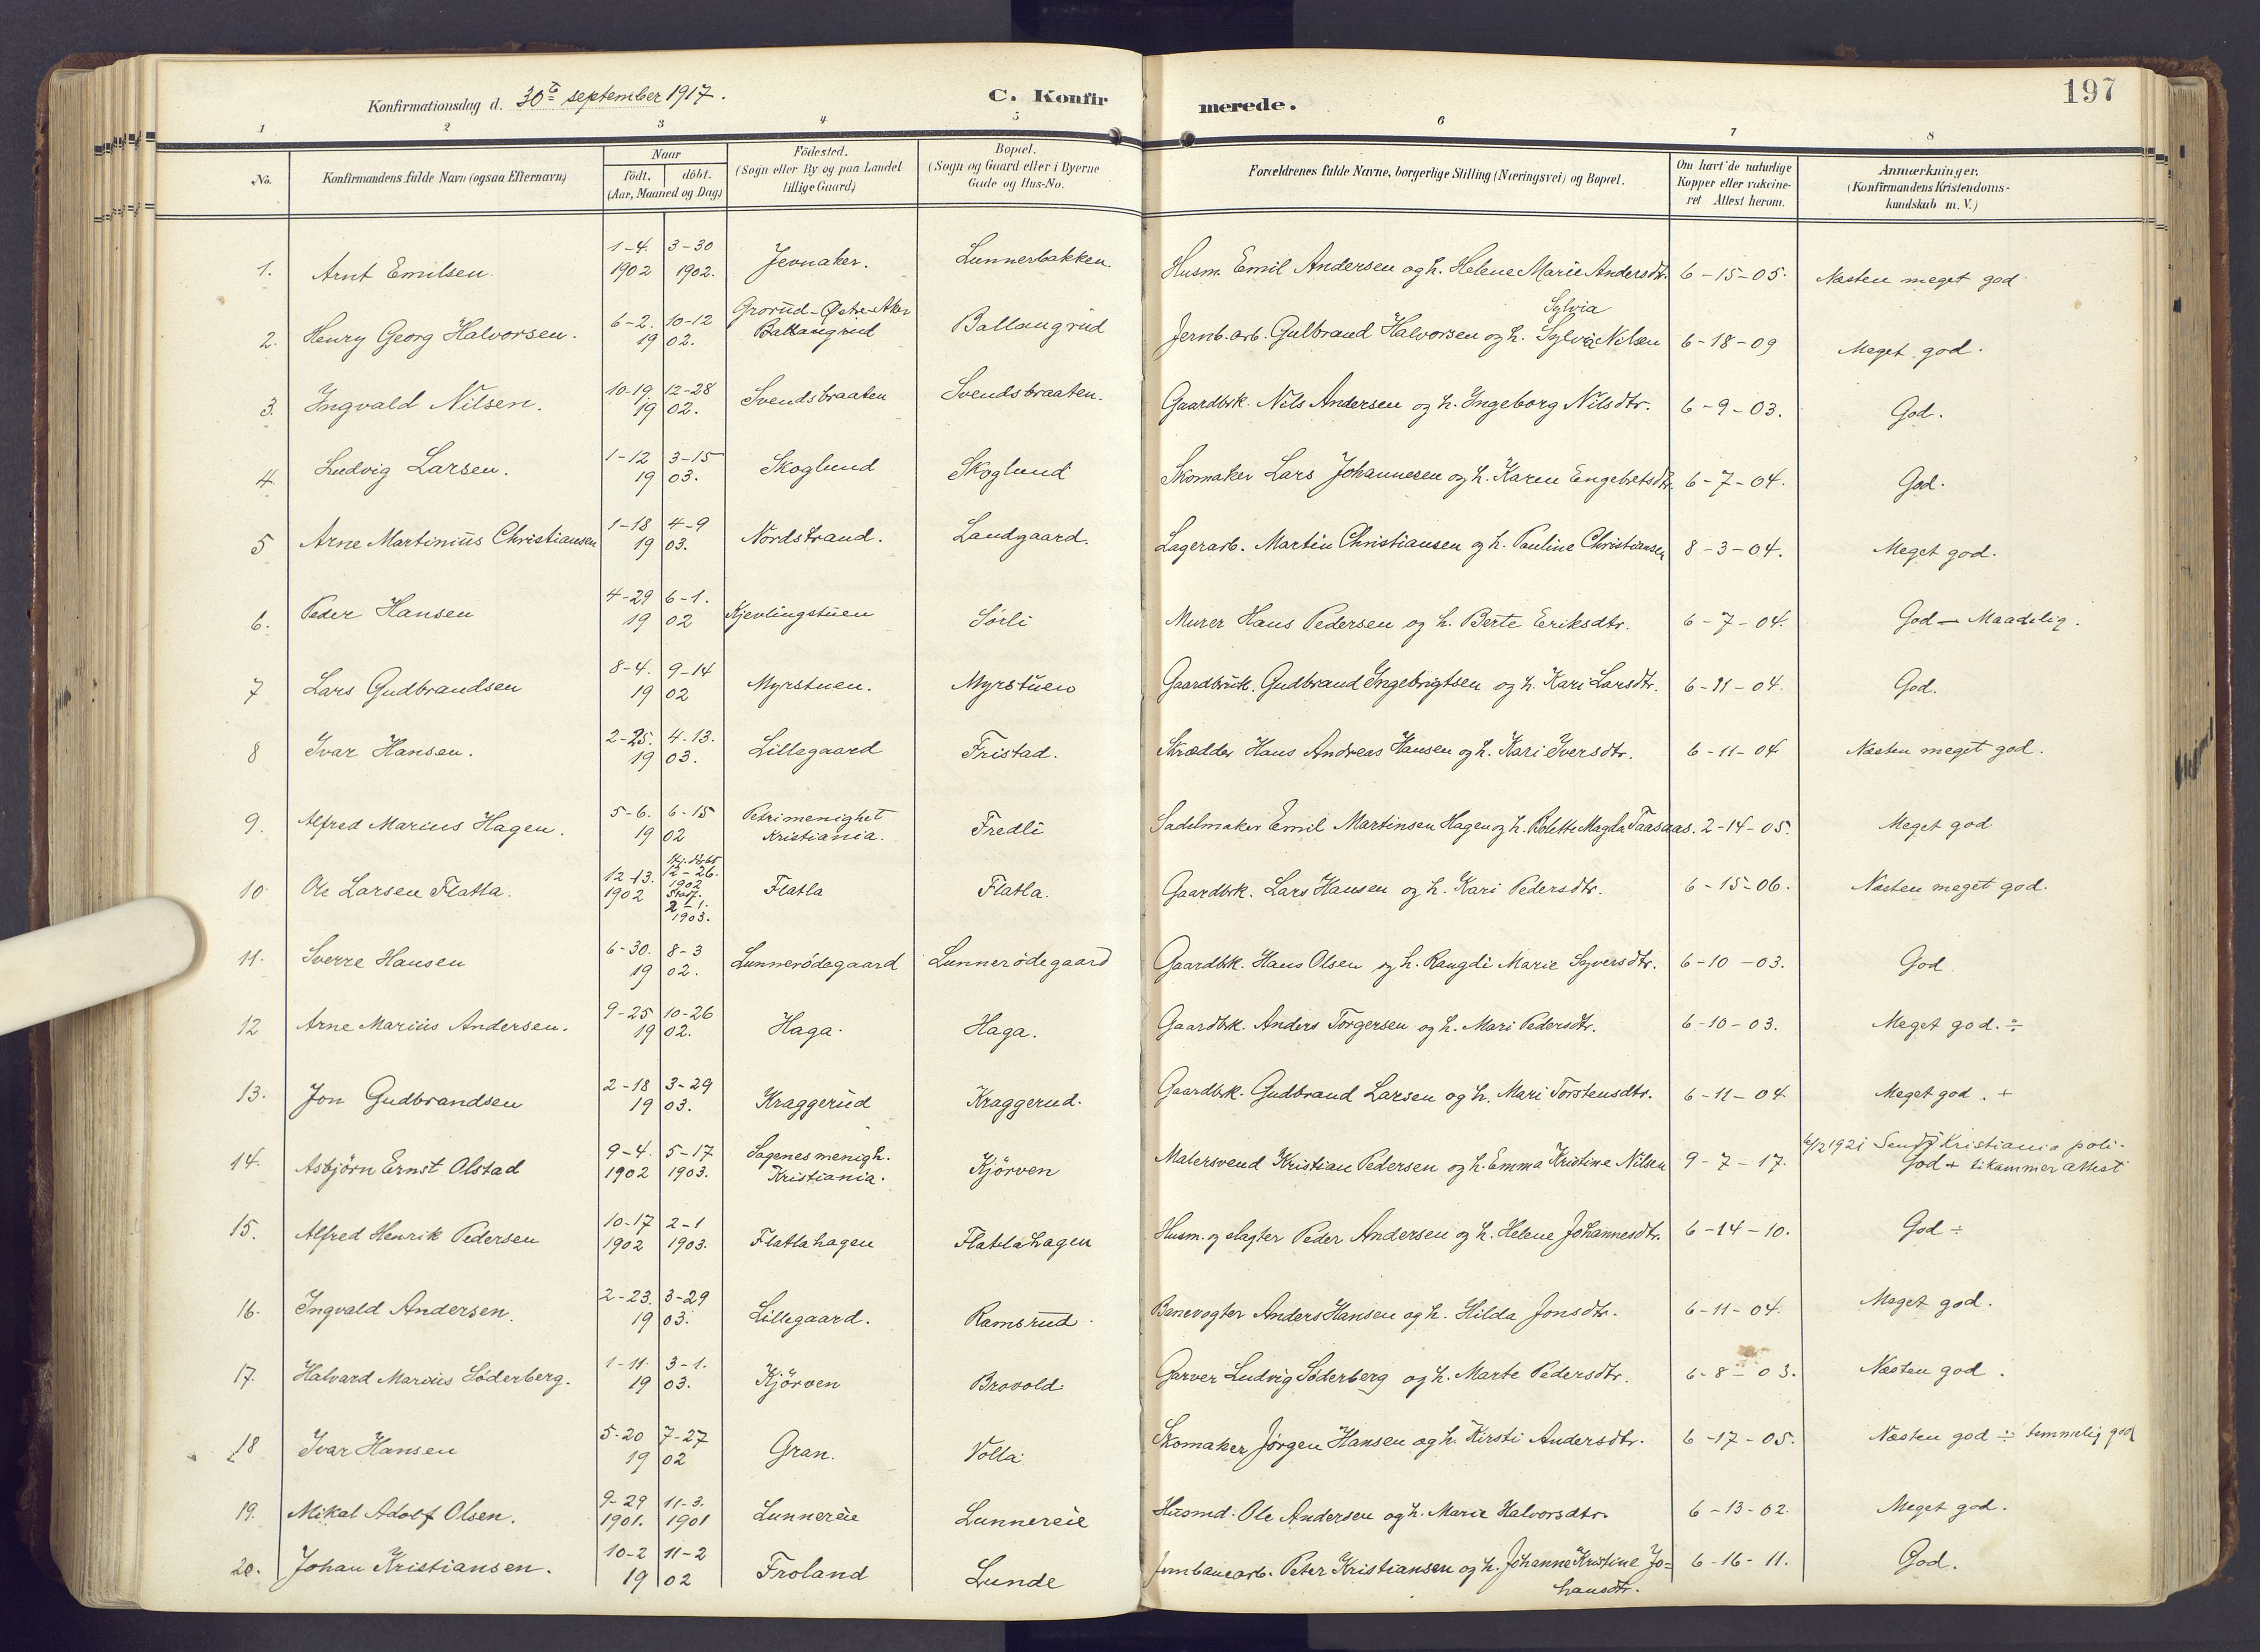 Konfirmationsdag d. 30te september 1917. C. Konfirmerede. 197
1 2 3 4 5 6 7 8
No. Konfirmandens fulde Navn (ogsaa Efternavn) Naar født. døbt. (Aar, Maaned og Dag) Fødested. (Sogn eller By og paa Landet tillige Gaard) Bopæl. (Sogn og Gaard eller i Byerne Gade og Hus-No. Forældrenes fulde Navne, borgerlige Stilling (Næringsvei) og Bopæl. Om havt de naturlige Kopper eller vakcineret Attest herom. Anmærkninger. (Konfirmandens Kristendomskundskab m. V.)
1. Arnt Emilsen. 1-4. 1902 3-30 1902. Jevnaker. Lunnerbakken. Husm. Emil Andersen og h. Helene Marie Andersdtr. 6-15-05. Næsten meget god
2. Henry Georg Halvorsen. 6-2. 10-12 1902. Grorud-Østre-Aker Ballangrud Ballangrud Jernb.arb. Gulbrand Halvorsen og h. Sylvia Nilsen Sylvia 6-18-09 Meget god.
3. Ingvald Nilsen. 10-19. 12-28 1902. Svendsbraaten Svendsbraaten. Gaardbrk. Nils Andersen og h. Ingeborg Nilsdtr. 6-9-03. God.
4. Ludvig Larsen. 1-12 3-15 1903. Skoglund Skoglund Skomaker Lars Johannesen og h. Karen Engebretsdtr. 6-7-04. God.
5 Arne Martinius Christiansen 1-18 4-9 1903. Nordstrand. Landgaard. Lagerarb. Martin Christiansen og h. Pauline Christiansen 8-3-04. Meget god.
6. Peder Hansen 4-29 6-1. 1902 Kjevlingstuen Sørli Murer Hans Pedersen og h. Berte Eriksdtr. 6-7-04. God — Maadelig.
7 Lars Gudbrandsen 8-4. 9-14 1902 Myrstuen. Myrstuen Gaardbruk. Gudbrand Ingebrigtsen og h. Kari Larsdtr. 6-11-04. God.
8 Ivar Hansen. 2-25. 4-13. 1903. Lillegaard Fristad. Skrædder Hans Andreas Hansen og h. Kari Iversdtr. 6-11-04 Næsten meget god.
9. Alfred Marius Hagen. 5-6. 6-15 1902 Petrimenighet Kristiania. Fredli Sadelmaker Emil Martinsen Hagen og h. Rolette Magda Taasaas. 2-14-05. Meget god
10 Ole Larsen Flatla. 12-13. 1902 Hj. døbt 12-26. 1902 stadf. 2-1. 1903. Flatla Flatla. Gaardbrk. Lars Hansen og h. Kari Pedersdtr. 6-15-06. Næsten meget god.
11. Sverre Hansen 6-30. 8-3 1902. Lunnerødegaard Lunnerødegaard Gaardbrk. Hans Olsen og h. Rangdi Marie Syversdtr. 6-10-03. God
12 Arne Marius Andersen. 9-25 10-26 1902. Haga. Haga. Gaardbrk. Anders Torgersen og h. Mari Pedersdtr. 6-10-03. Meget god. ÷
13. Jon Gudbrandsen 2-18 3-29 1903. Kraggerud Kraggerud. Gaardbrk. Gudbrand Larsen og h. Mari Torstensdtr. 6-11-04 Meget god. +
14. Asbjörn Ernst Olstad 9-4. 1902 5-17 1903. Sagenes menigh. Kristiania. Kjörven Malersvend Kristian Pedersen og h. Emma Kristine Nilsen 9-7-17. 6/12 1921 Sendt Kristiania poli- God + tikammer attest
15. Alfred Henrik Pedersen 10-17 1902 2-1 1903. Flatlahagen Flatlahagen Husm. og slagter Peder Andersen og h. Helene Johannesdtr. 6-14-10. God ÷
16. Ingvald Andersen. 2-23. 3-29 1903. Lillegaard. Ramsrud. Banevogter Anders Hansen og h. Hilda Jonsdtr. 6-11-04. Meget god.
17. Halvard Marius Søderberg. 1-11. 3-1. 1903. Kjörven Brovold. Garver Ludvig Søderberg og h. Marte Pedersdtr. 6-8-03. Næsten god.
18 Ivar Hansen 5-20 7-27 1902 Gran. Volla Skomaker Jørgen Hansen og h. Kirsti Andersdtr. 6-17-05. Næsten god ÷ temmelig god
19. Mikal Adolf Olsen. 9-29 1901. 11-3. 1901 Lunnereie Lunnereie Husmd. Ole Andersen og h. Marie Halvorsdtr. 6-13-02. Meget god.
20. Johan Kristiansen. 10-2 11-2 1902 Froland Lunde Jernbanearb. Peter Kristiansen og h. Johanne Kristine Jo= 6-16-11. God.
hansdtr.